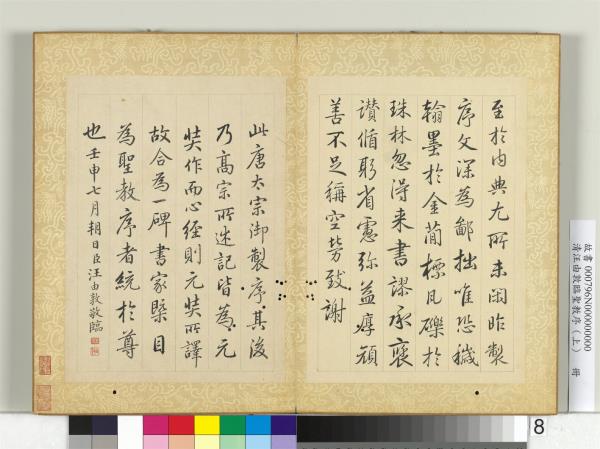 至於內典尤所未閑昨製
序文深為鄙拙唯恐穢
翰墨於金簡標凡礫於
珠林忽得來書謬承褒
讚循躬省慮彌益厚顏
善不足稱空勞致謝
此唐太宗御製序其後
乃高宗所述記皆為元
奘作而心經則元奘所譯
故合為一碑書家槩目
為聖教序者統於尊
也壬申七月朔日臣汪由敦敬臨
故書000796N000000000
清汪由敦臨聖教序(上) 冊
8